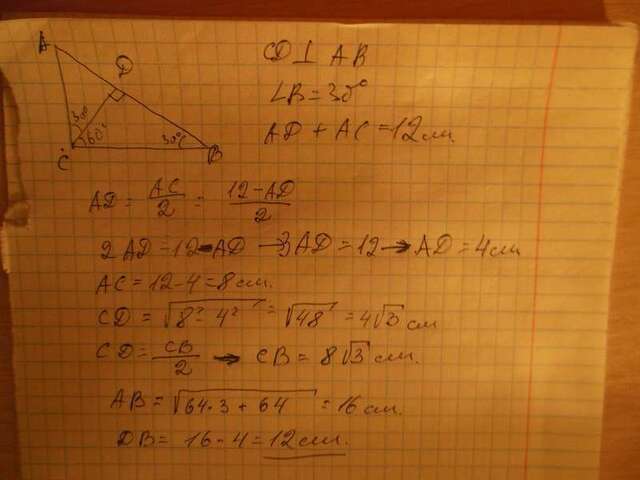 A
D
C
B
30°
60°
30°
CD ⊥ AB
∠B = 30°
AD + AC = 12 см.
AD = AC/2 = (12 - AD)/2
2AD = 12 - AD → 3AD = 12 → AD = 4 см
AC = 12 - 4 = 8 см.
CD = √(8² - 4²) = √48 = 4√3 см
CD = CB/2 → CB = 8√3 см.
AB = √(64·3 + 64) = 16 см.
DB = 16 - 4 = 12 см.